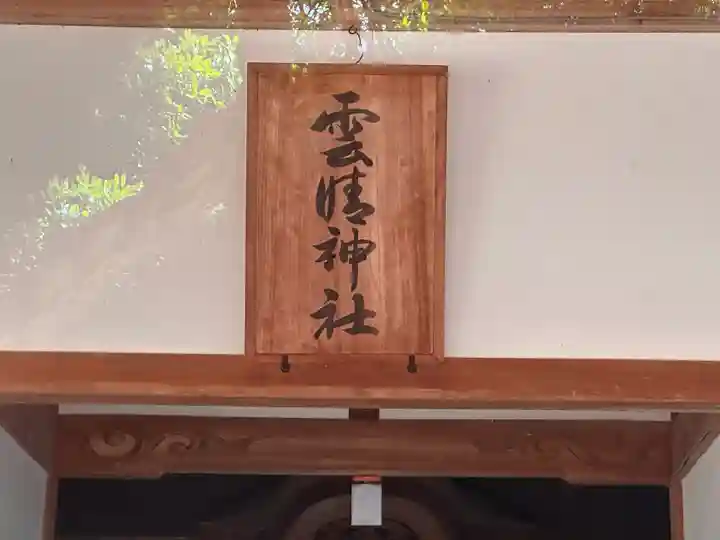 雲晴神社